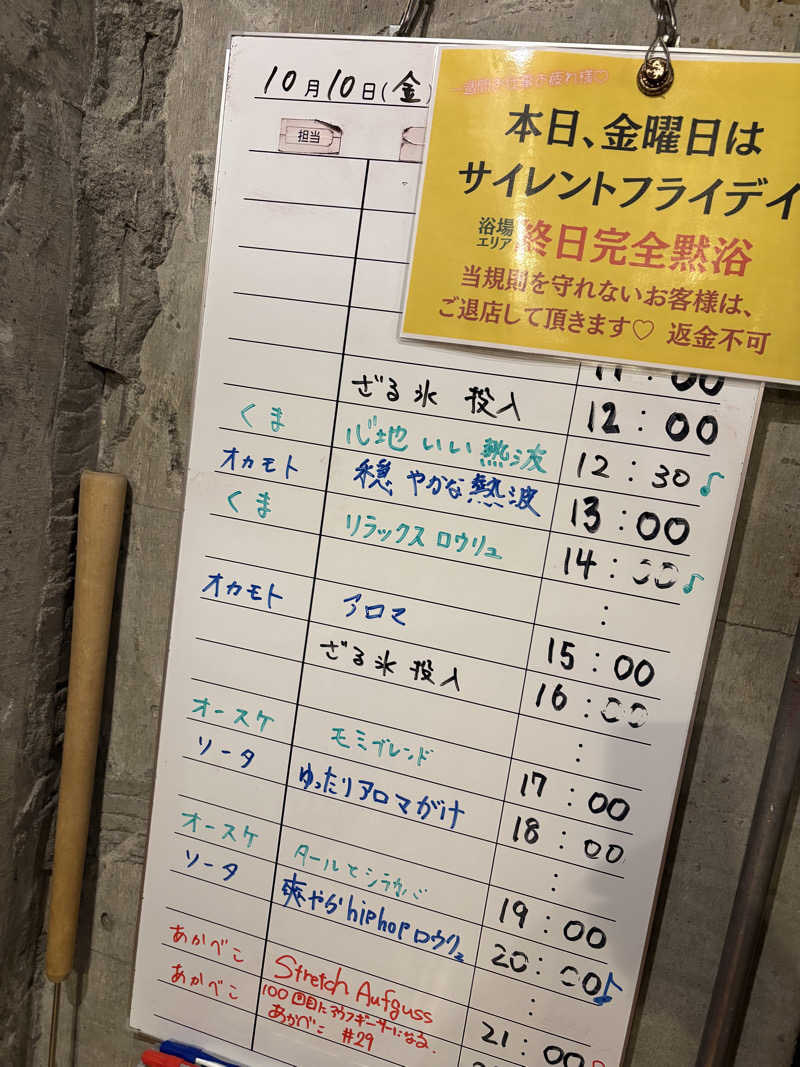 10月10日(金)
週間お仕事お疲れ様♡
本日、金曜日は
サイレントフライデイ
浴場
エリア 終日完全黙浴
当規則を守れないお客様は、
ご退店して頂きます♡ 返金不可
担当
11:00
ざる氷 投入 12:00
くま 心地いい熱波 12:30♪
オカモト 穏やかな熱波 13:00
くま リラックスロウリュ 14:00♪
:
オカモト アロマ 15:00
ざる氷 投入 16:00
:
オースケ モミブレンド 17:00
ソータ ゆったりアロマがけ 18:00
:
オースケ タールとシラカバ 19:00
ソータ 爽やか hiphop ロウリュ 20:00♪
:
あかべこ Stretch Aufguss 21:00♪
あかべこ 100回目にアウフギーサーになる
あかべこ #29